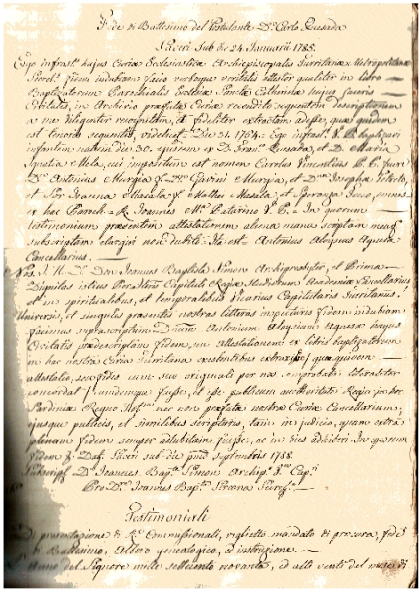 Fede di Battesimo del Postulante D.n Carlo Quesada
Saceri Sub die 24 Januarii 1785.
Ego infras.tus hujus Curiæ Ecclesiasticæ Archiepiscopalis Turritanæ Metropolitanæ
fidem indubiam facio verboque veritatis attestor qualiter in libro
Baptizatorum Parochialis Ecclesiæ Sanctæ Catharinæ hujus Saceris
Civitatis, in Archivio præfatæ Curiæ recondito sequentem descriptionem
a me diligenter recognitam, et fideliter extractam adesse, quæ quidem
est tenoris sequentis, videlicet: Die 31. 1764: Ego infras.t baptizavi
infantem natum die 30. ejusdem ex D. Fran.co Quesada, et D. Maria
Ignatia Mela, cui impositum est nomen Carolus Vincentius
D.n Antonius Murgia Gavini Murgia, et D.na Josepha
et Joanna Masala Matthei Masala, et Speranza omnes
ex hac Paroch. Joannes M.a Catarino V. C. = In quorum
testimonium præsentem attestationem aliena manu scriptam mea
subscriptam elargiri non dubito. Ita est = Antonius Aloysius Agnesa
Cancellarius.
Nos J. U. D. Don Joannes Baptista Simon Archipresbyter, et Prima
Dignitas istius Turritani Capituli Regiæ Studiorum Academiæ Cancellarius
et in spiritualibus, et temporalibus Vicarius Capitularis Turritanus:
Universis, et singulis præsentes nostras litteras inspecturis fidem indubiam
facimus suprascriptum Antonium Aloysium Agnesa hujus
Civitatis prædescriptam fidem, seu attestationem ex libris baptizatorum
in hac nostra Curia Turritana existentibus extraxisse, quæ quidem
attestatio, seu fides cum suo originali per nos comprobata liberaliter
concordat, eundemque fuisse, et esse publicum auctoritate Regia in hoc
Sardiniæ Regno Not.m nec non præfatæ nostræ Curiæ Cancellarium;
ejusque publicis, et similibus scripturis, tam in judicio, quam extra
plenam fidem semper adhibitam fuisse, ac in dies adhiberi. In quorum
fidem Dat. Saceri sub die prima Septembris 1788.
D. Joannes Bap.ta Simon Archip. Cap.s
Pro D.no Joannes Bap.ta Pirana Secret.s
Testimoniali
di presentazione di R.o Commissionati, viglietto mandato di procura, fede
di Battesimo, Albero genealogico, ed instruzione.
Anno del Signore mille settecento novanta, ed alli venti del mese di